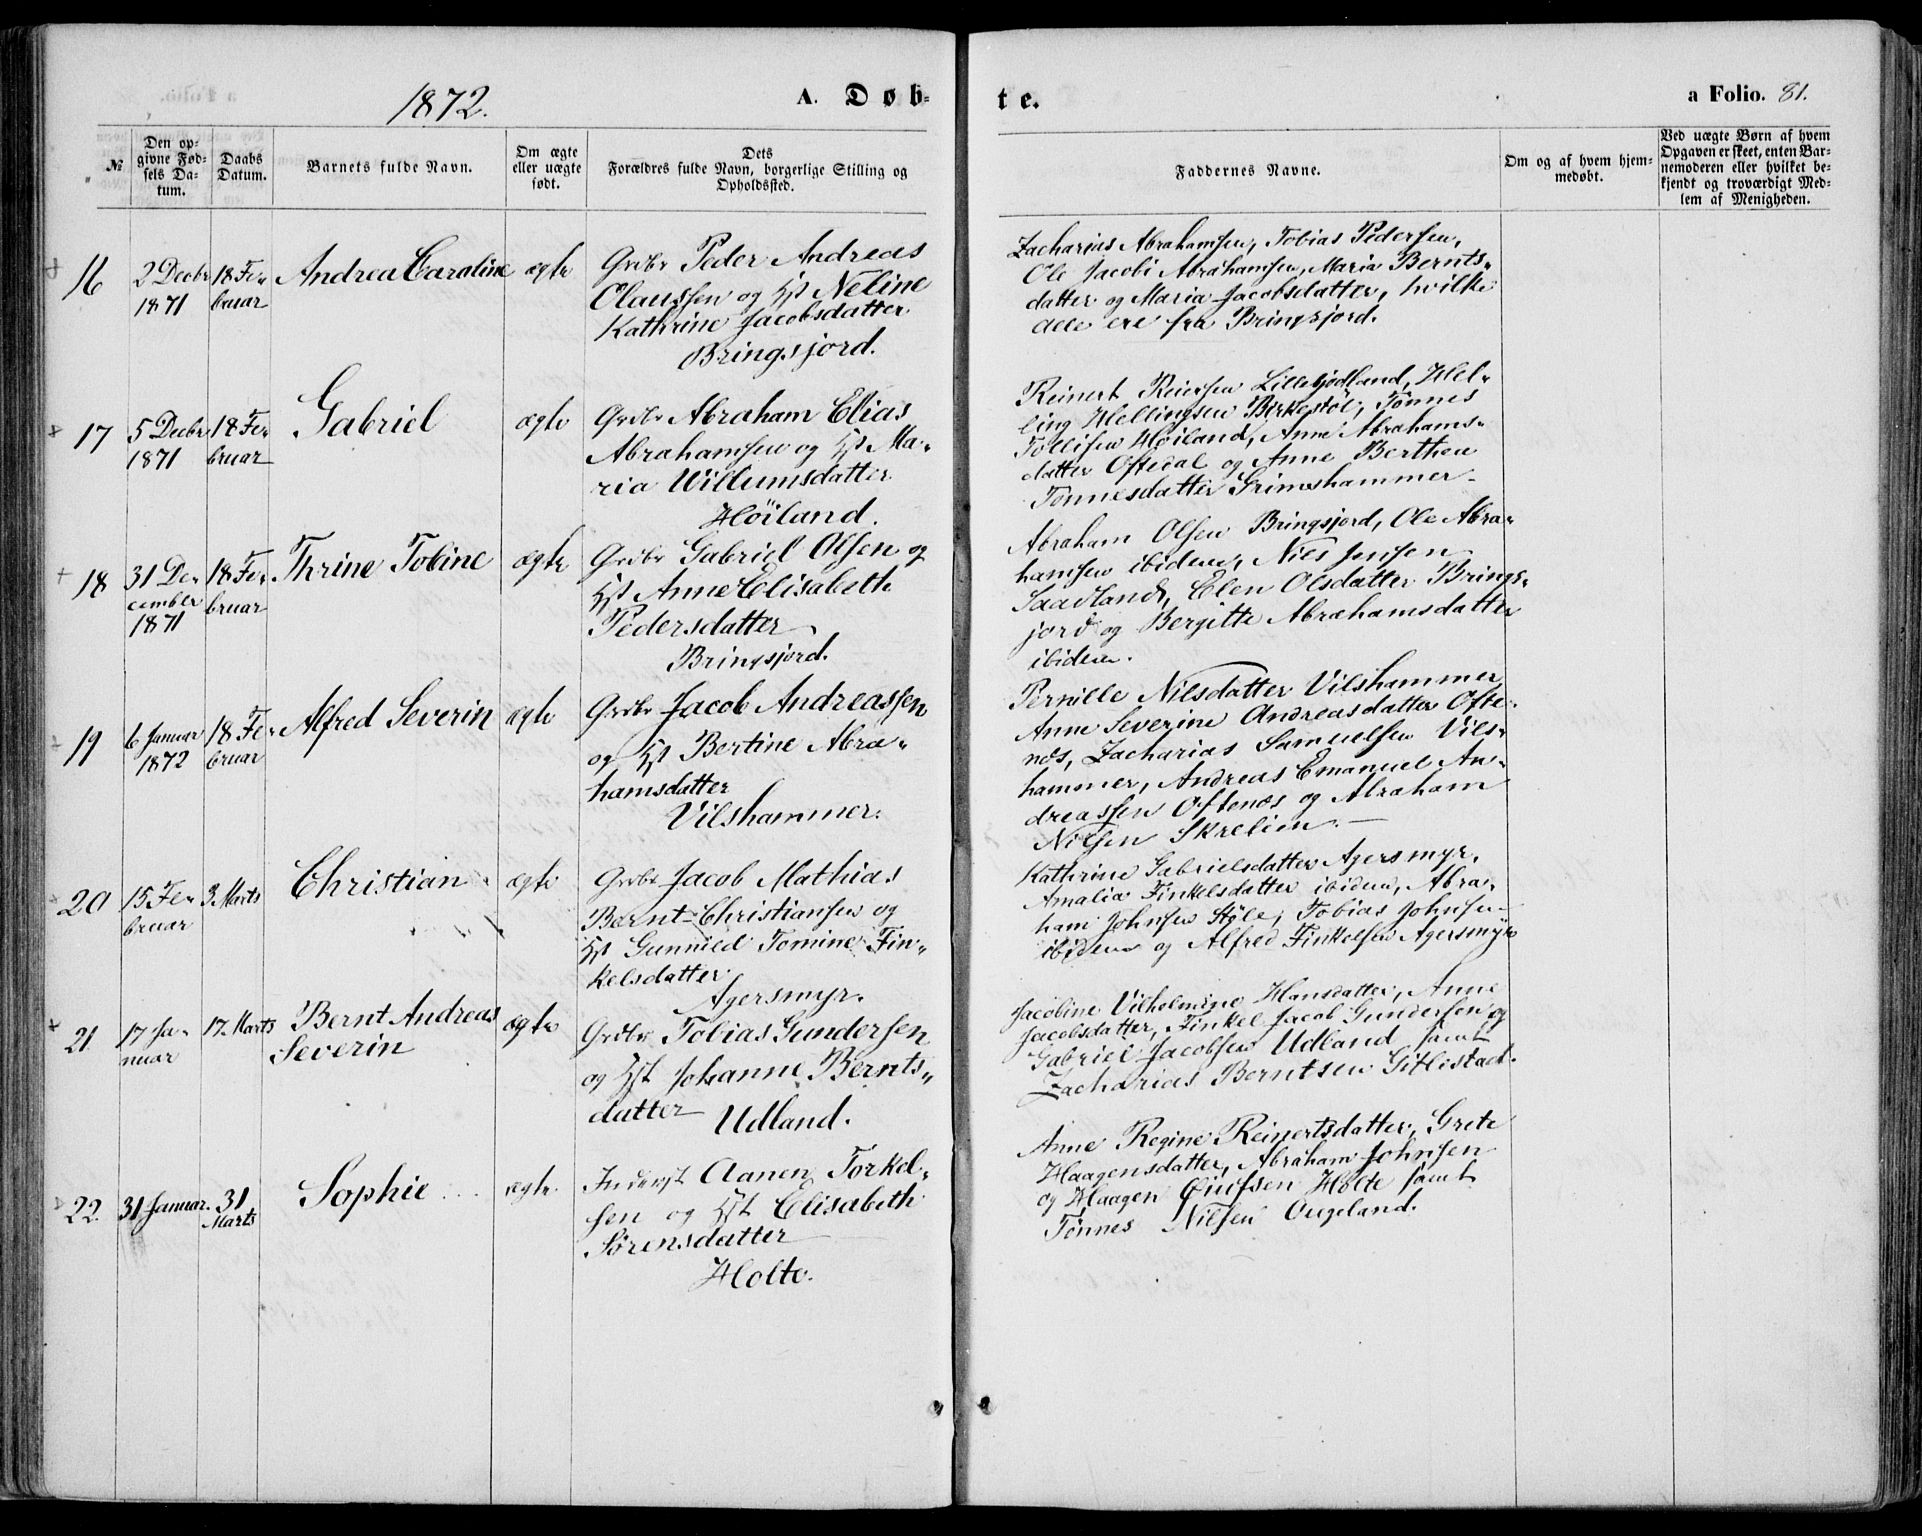 1872.
A. Døb-
te.
a Folio. 81.
№
Den op-
givne Fød-
sels Da-
tum.
Daabs
Datum.
Barnets fulde Navn.
Om ægte
eller uægte
født.
Dets
Forældres fulde Navn, borgerlige Stilling og
Opholdssted.
Faddernes Navne.
Om og af hvem hjem-
medøbt.
Ved uægte Børn af hvem
Opgaven er skeet, enten Bar-
nemoderen eller hvilket be-
kjendt og troværdigt Med-
lem af Menigheden.
16
2 Decbr
1871
18 Fe-
bruar
Andrea Caroline
ægte
Grdbr Peder Andreas
Olaussen og Hst Neline
Kathrine Jacobsdatter
Bringsjord.
Zacharias Abrahamsen, Tobias Pedersen,
Ole Jacobi Abrahamsen, Maria Bernts-
datter og Maria Jacobsdatter, hvilke
alle ere fra Bringsjord.
17
5 Decbr
1871
18 Fe-
bruar
Gabriel
ægte
Grdbr Abraham Elias
Abrahamsen og Hst Ma-
ria Willumsdatter
Høiland.
Reinert Reiersen Lillebjødland, Hel-
ling Hellingsen Birkestøl, Tønnes
Tollifsen Høiland, Anne Abrahams-
datter Oftedal og Anne Berthea
Tønnesdatter Grimshammer
18
31 De-
cember
1871
18 Fe-
bruar
Thrine Tobine
ægte
Grdbr Gabriel Olsen og
Hst Anne Elisabeth
Pedersdatter
Bringsjord.
Abraham Olsen Bringsjord, Ole Abra-
hamsen ibidem, Niels Jensen
Saadland, Elen Olsdatter Brings-
jord og Bergitte Abrahamsdatter
ibidem.
19
6 Januar
1872
18 Fe-
bruar
Alfred Severin
ægte
Grdbr Jacob Andreassen
og Hst Bertine Abra-
hamsdatter
Vilshammer.
Pernille Nilsdatter Vilshammer,
Anne Severine Andreasdatter Ofte-
næs, Zacharias Samuelsen Vils-
hammer, Andreas Emanuel An-
dreassen Oftenæs og Abraham
Nilsen Skreliem.
20
15 Fe-
bruar
3 Marts
Christian
ægte
Grdbr Jacob Mathias
Bernt Christiansen og
Hst Gunnild Tomine Fin-
kelsdatter
Agersmyr.
Kathrine Gabrielsdatter Agersmyr,
Amalia Finkelsdatter ibidem, Abra-
ham Johnsen Høle, Tobias Johnsen
ibidem og Alfred Finkelsen Agersmyr
21
17 Ja-
nuar
17. Marts
Bernt Andreas
Severin
ægte
Grdbr Tobias Gundersen
og Hst Johanne Bernts-
datter Udland.
Jacobine Vilhelmine Hansdatter, Anne
Jacobsdatter, Finkel Jacob Gundersen og
Gabriel Jacobsen Udland samt
Zacharias Berntsen Gitlestad.
22.
31 Januar.
31
Marts
Sophie
ægte
Inderst Aanen Torkel-
sen og Hst Elisabeth
Sørensdatter
Holte.
Anne Regine Reinertsdatter, Grete
Haagensdatter, Abraham Johnsen
og Haagen Øiufsen Holte samt
Tønnes Nilsen Ougeland.